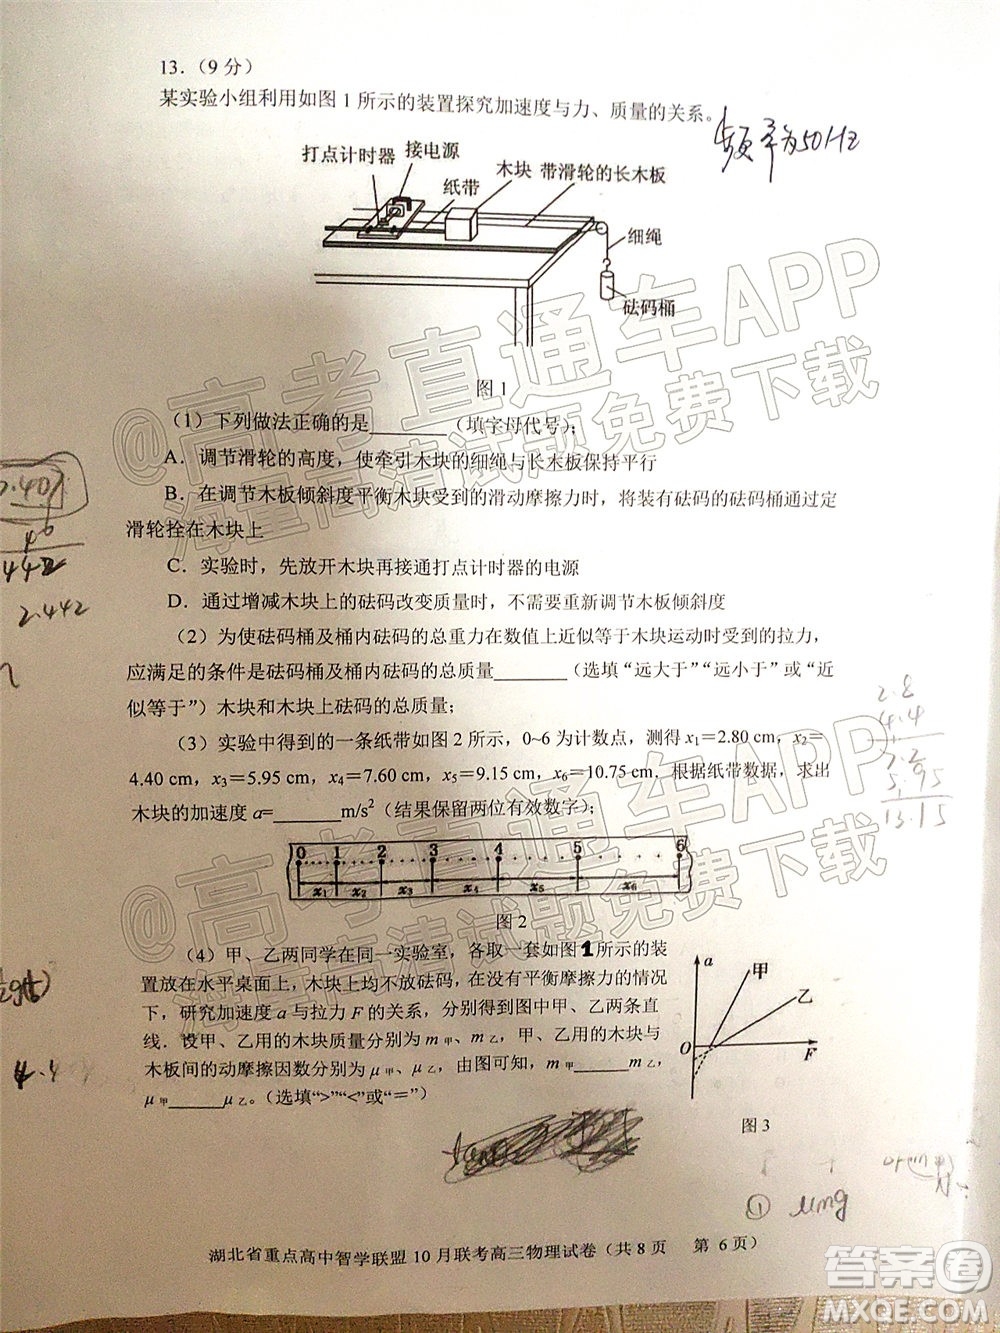 13.（9 分）
某实验小组利用如图 1 所示的装置探究加速度与力、质量的关系。
频率为50Hz
打点计时器 接电源
纸带 木块 带滑轮的长木板
细绳
砝码桶
图 1
（1）下列做法正确的是________（填字母代号）；
A．调节滑轮的高度，使牵引木块的细绳与长木板保持平行
B．在调节木板倾斜度平衡木块受到的滑动摩擦力时，将装有砝码的砝码桶通过定
滑轮拴在木块上
C．实验时，先放开木块再接通打点计时器的电源
D．通过增减木块上的砝码改变质量时，不需要重新调节木板倾斜度
（2）为使砝码桶及桶内砝码的总重力在数值上近似等于木块运动时受到的拉力，
应满足的条件是砝码桶及桶内砝码的总质量________（选填“远大于”“远小于”或“近
似等于”）木块和木块上砝码的总质量；
（3）实验中得到的一条纸带如图 2 所示，0~6 为计数点，测得 x1=2.80 cm，x2=
4.40 cm，x3=5.95 cm，x4=7.60 cm，x5=9.15 cm，x6=10.75 cm．根据纸带数据，求出
木块的加速度 a=_______m/s²（结果保留两位有效数字）；
0 1 2 3 4 5 6
x1 x2 x3 x4 x5 x6
图 2
（4）甲、乙两同学在同一实验室，各取一套如图1所示的装
置放在水平桌面上，木块上均不放砝码，在没有平衡摩擦力的情况
下，研究加速度 a 与拉力 F 的关系，分别得到图中甲、乙两条直
线．设甲、乙用的木块质量分别为 m甲、m乙，甲、乙用的木块与
木板间的动摩擦因数分别为 μ甲、μ乙，由图可知，m甲______m乙，
μ甲______μ乙。（选填“>”“<”或“=”）
a
甲
乙
O F
图 3
2.442
2.8
4.4
7.2
5.95
13.15
① μmg
湖北省重点高中智学联盟 10 月联考高三物理试卷（共 8 页 第 6 页）
@高考直通车APP
海量高清试题免费下载
@高考直通车APP
海量高清试题免费下载
答案圈
MXQE.COM